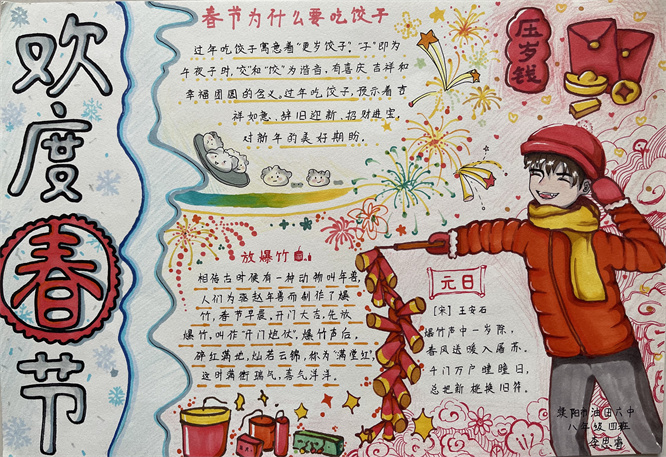 欢度春节
春节为什么要吃饺子
过年吃饺子寓意着“更岁饺子”,“子”即为
午夜子时,“交”和“饺”为谐音,有喜庆吉祥和
幸福团圆的含义。过年吃饺子,预示着吉
祥如意、辞旧迎新、招财进宝,
对新年的美好期盼。
压岁钱
放爆竹
相传古时候有一种动物叫年兽,
人们为驱赶年兽而制作了爆
竹,春节早晨,开门大吉,先放
爆竹,叫作“开门炮仗”,爆竹声后,
碎红满地,灿若云锦,称为“满堂红”,
这时满街瑞气,喜气洋洋。
元日
[宋] 王安石
爆竹声中一岁除,
春风送暖入屠苏。
千门万户曈曈日,
总把新桃换旧符。
濮阳市油田六中
八年级四班
李思睿